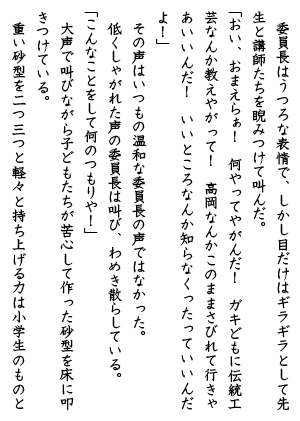 委員長はうつろな表情で、しかし目だけはギラギラとして先
生と講師たちを睨みつけて叫んだ。
「おい、おまえらぁ！　何やってやがんだ！　ガキどもに伝統工
芸なんか教えやがって！　高岡なんかこのままさびれて行きゃ
あいいんだ！　いいところなんか知らなくったっていいんだ
よ！」
その声はいつもの温和な委員長の声ではなかった。
低くしゃがれた声の委員長は叫び、わめき散らしている。
「こんなことをして何のつもりや！」
大声で叫びながら子どもたちが苦心して作った砂型を床に叩
きつけている。
重い砂型を二つ三つと軽々と持ち上げる力は小学生のものと